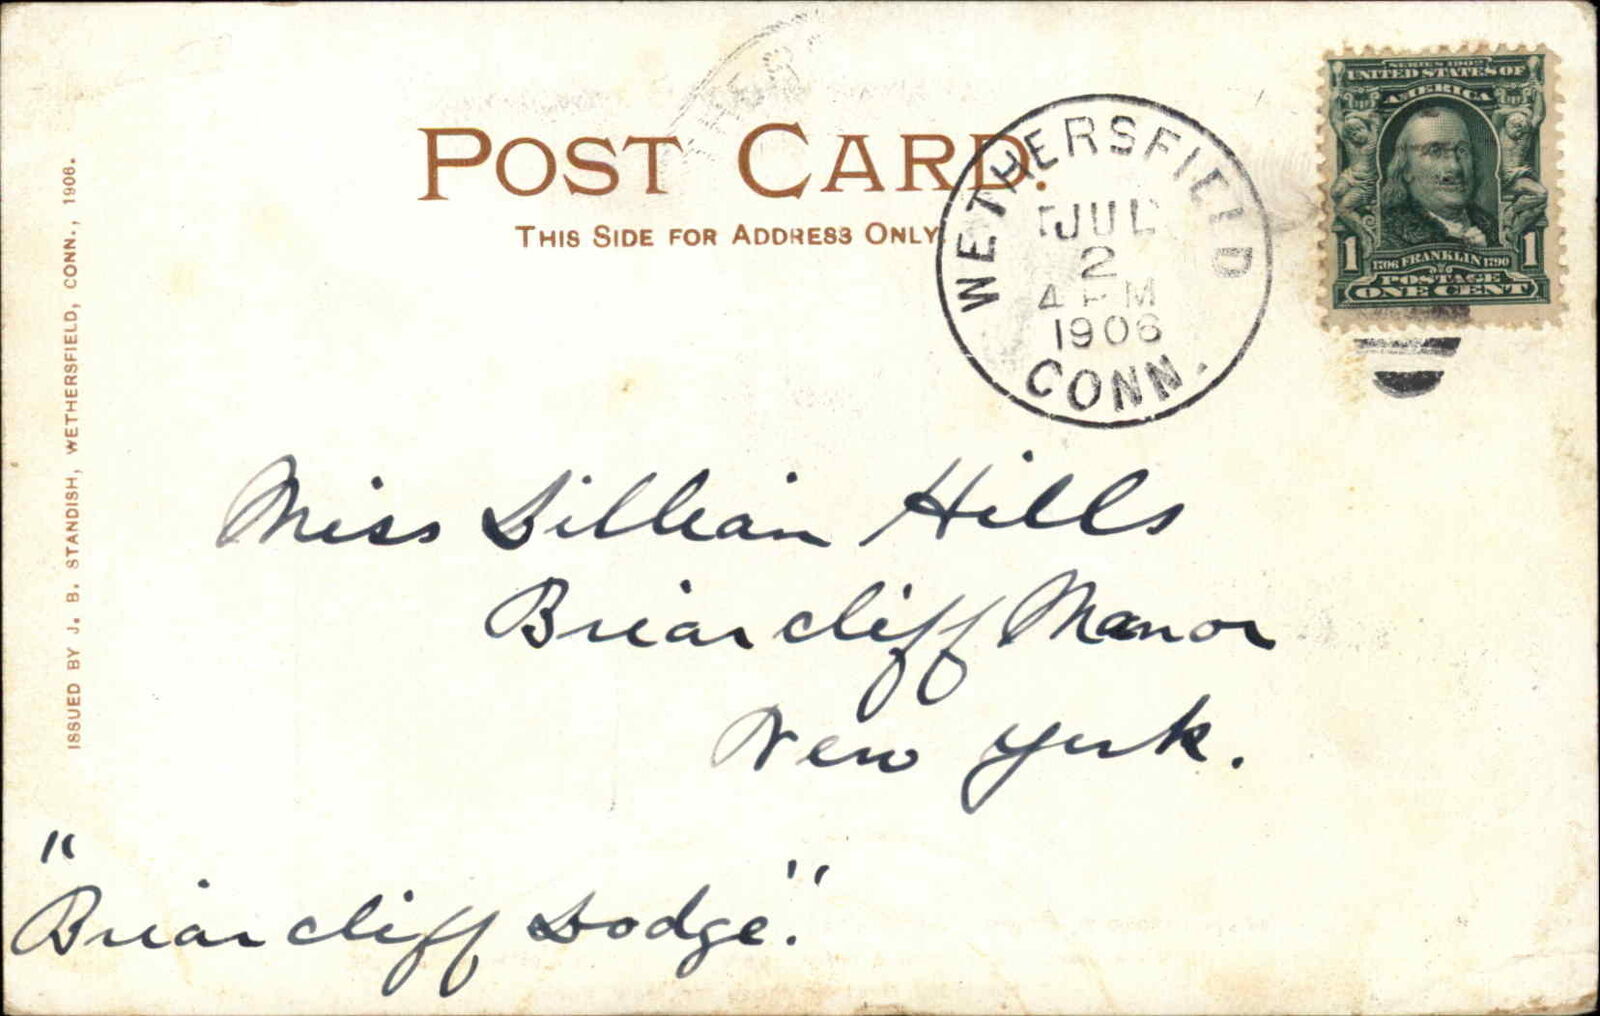 POST CARD.
THIS SIDE FOR ADDRESS ONLY
WETHERSFIELD
JUL
2
4 PM
1906
CONN.
SERIES 1902
UNITED STATES OF
AMERICA
1 1706 FRANKLIN 1790 1
POSTAGE
ONE CENT
ISSUED BY J. B. STANDISH, WETHERSFIELD, CONN., 1906.
Miss Lillian Hills
Briarcliff Manor
New York.
"Briarcliff Lodge."